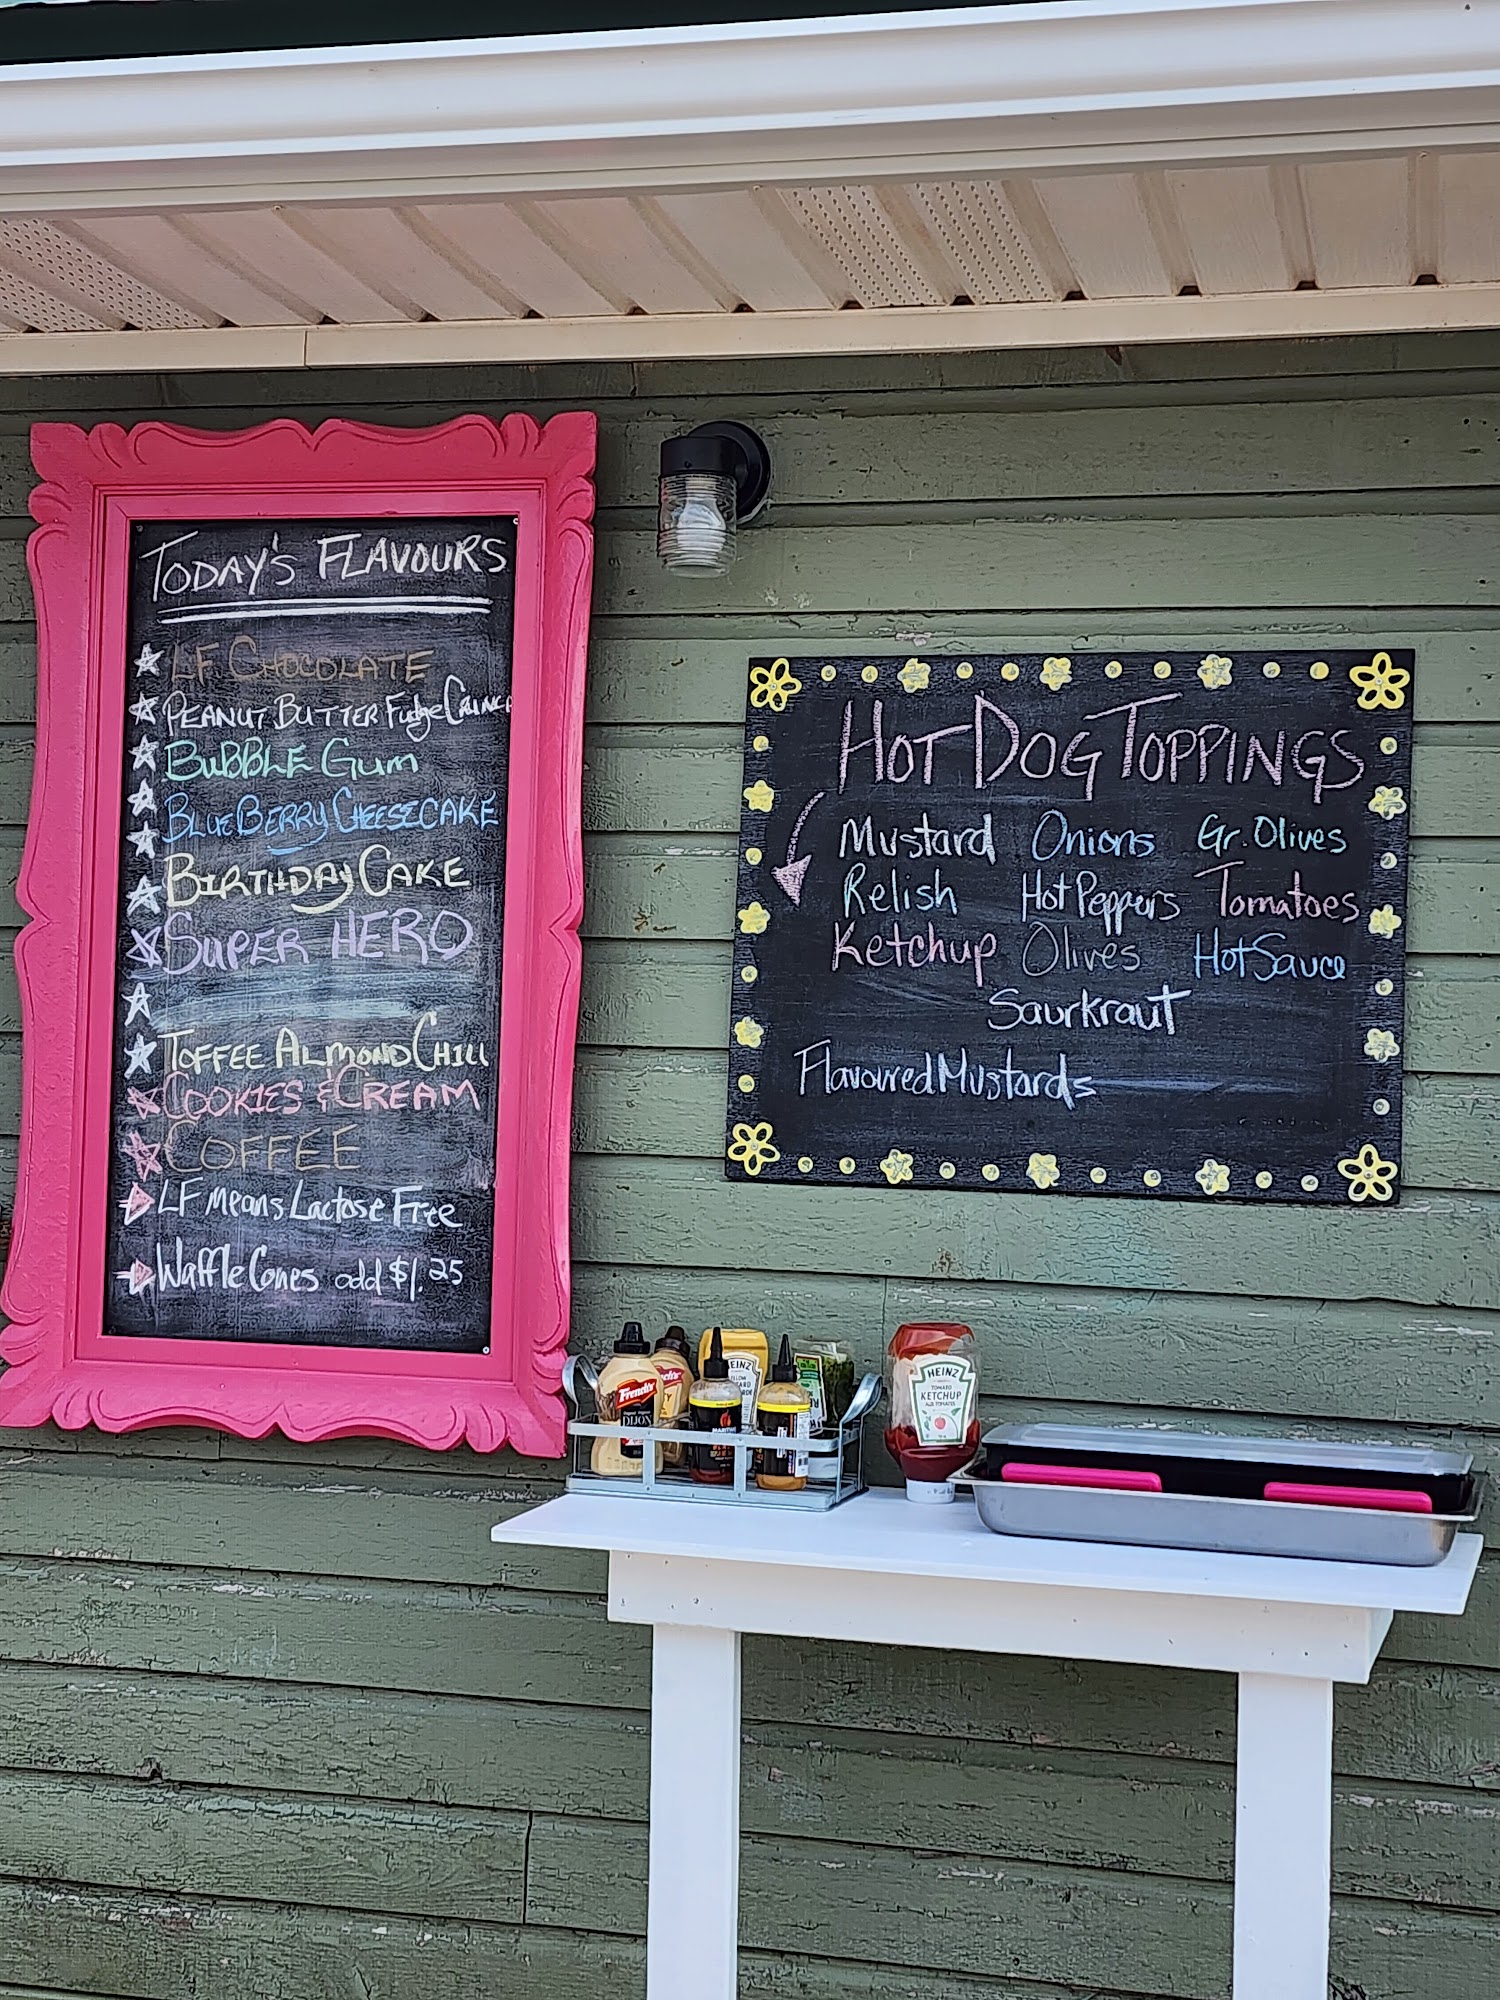 TODAY'S FLAVOURS
LF CHOCOLATE
PEANUT BUTTER Fudge CRUNCH
BUBBLE Gum
BLUEBERRY CHEESECAKE
BIRTHDAY CAKE
SUPER HERO
TOFFEE ALMOND CHILL
COOKIES & CREAM
COFFEE
LF Means Lactose Free
Waffle Cones add $1.25
HOT DOG TOPPINGS
Mustard Onions Gr. Olives
Relish Hot Peppers Tomatoes
Ketchup Olives Hot Sauce
Saurkraut
Flavoured Mustards
French's
DIJON
HEINZ
HEINZ
TOMATO
KETCHUP